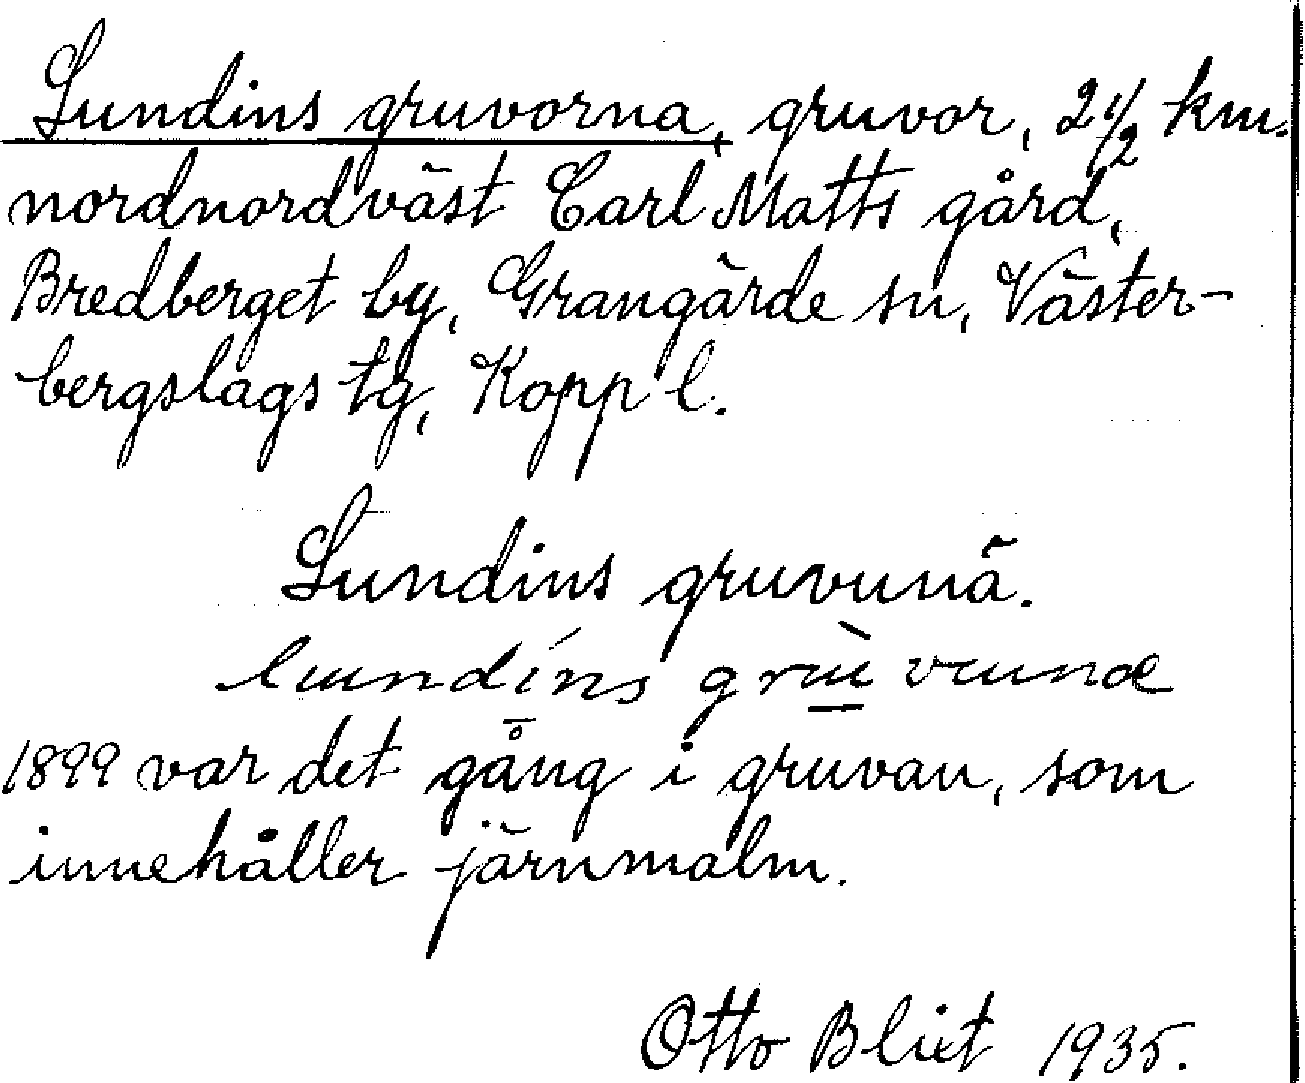 Lundins gruvorna, gruvor, 2 1/2 km.
nordnordväst Carl Matts gård,
Bredberget by, Grangärde sn, Väster-
bergslags tg, Kopp l.
Lundins gruvunä.
1899 var det gång i gruvan, som
innehåller järnmalm.
Otto Blixt 1935.